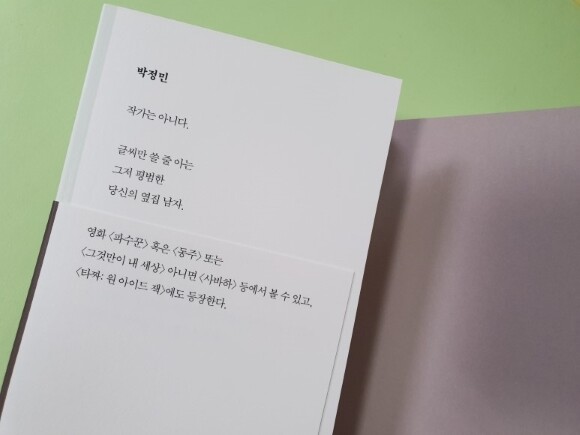 박정민
작가는 아니다.
글씨만 쓸 줄 아는
그저 평범한
당신의 옆집 남자.
영화 〈파수꾼〉 혹은 〈동주〉 또는
〈그것만이 내 세상〉 아니면 〈사바하〉 등에서 볼 수 있고,
〈타짜: 원 아이드 잭〉에도 등장한다.